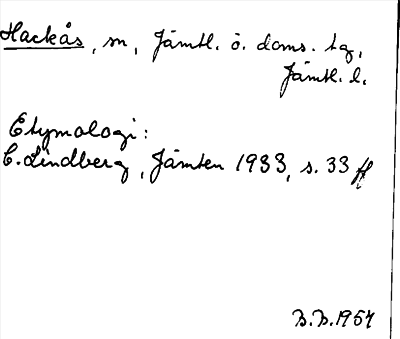 Hackås, sn, Jämtl. ö. doms. tg,
Jämtl. l.
Etymologi:
C. Lindberg, Jämten 1933, s. 33 ff
B.B. 1957